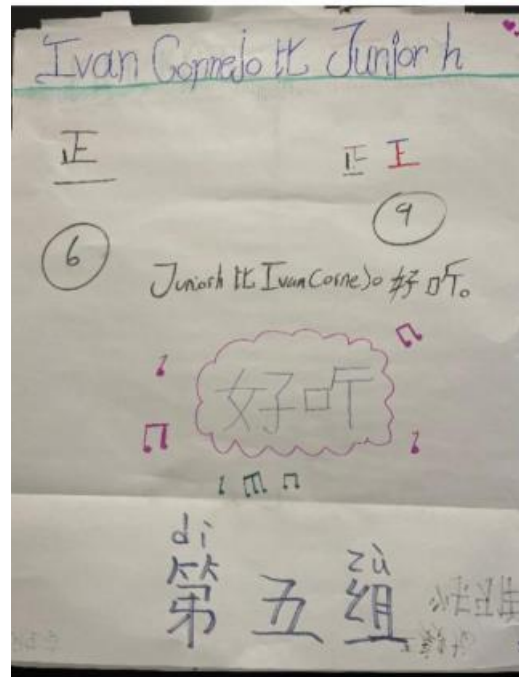 Ivan Cornejo 比 Junior h
正 正 王
6 9
Junior h 比 Ivan Cornejo 好听。
好听
dì zù
第五组